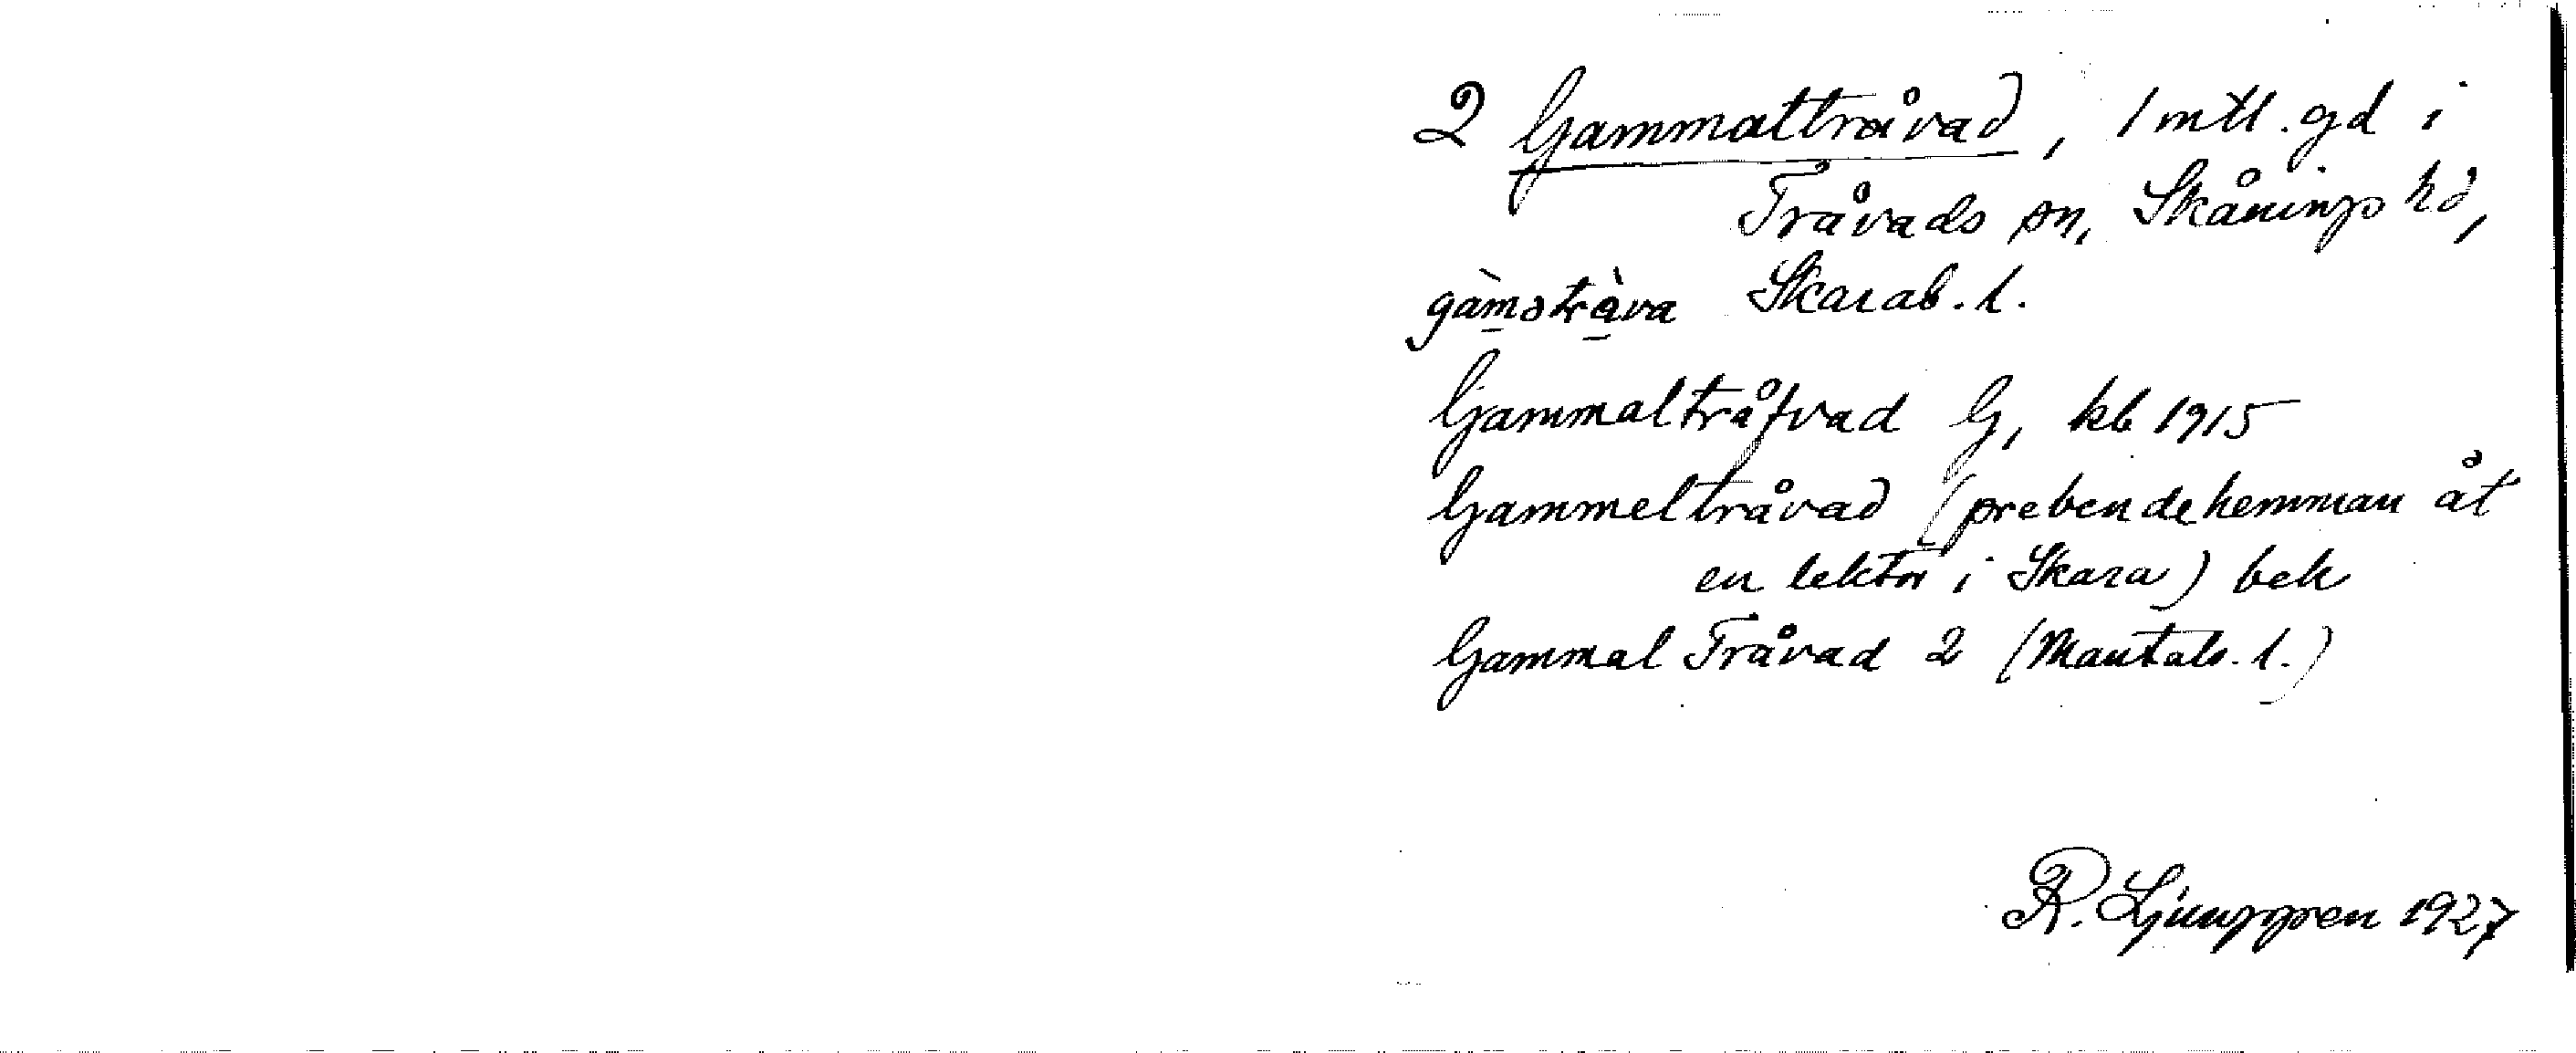 2 Gammaltråvad, 1 mtl. gd i
Tråvads sn, Skånings hd,
gàmstràva Skarab. l.
Gammaltråfvad G, kb 1915
Gammeltråvad (prebendehemman åt
en lektor i Skara) bek
Gammal Tråvad 2 (Mantals. l.)
R. Ljunggren 1927